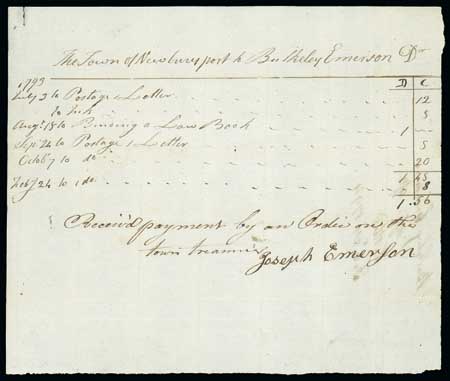 The Town of Newburyport to Bulkeley Emerson Dr
1799 D C
July 3 to Postage a Letter 12
to Ink 5
Augt 15 to Binding a Law Book 1 —
Sep 24 to Postage a Letter 5
Octo 7 to do 20
1 45
Feby 24 to do 8
1.56
Receivd payment by an Order on the
town treasurer
Joseph Emerson